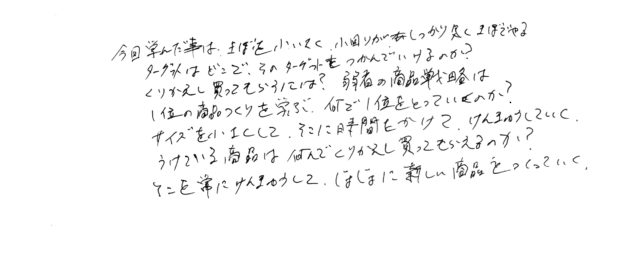 今回学んだ事は、まぼを小いさく、小回りがしっかり気くまぼでやる
ターゲットはどこで、そのターゲットをつかんでいけるのか?
くりかえし買ってもらうには? 弱者の商品戦略は
1位の商品づくりを学ぶ、何で1位をとっていくのか?
サイズを小さくして、そこに時間をかけて、けんきゅうしていく、
うけている商品は何んでくりかえし買ってもらえるのか?
そこを常にけんきゅうして、じょじょに新しい商品をつくっていく、